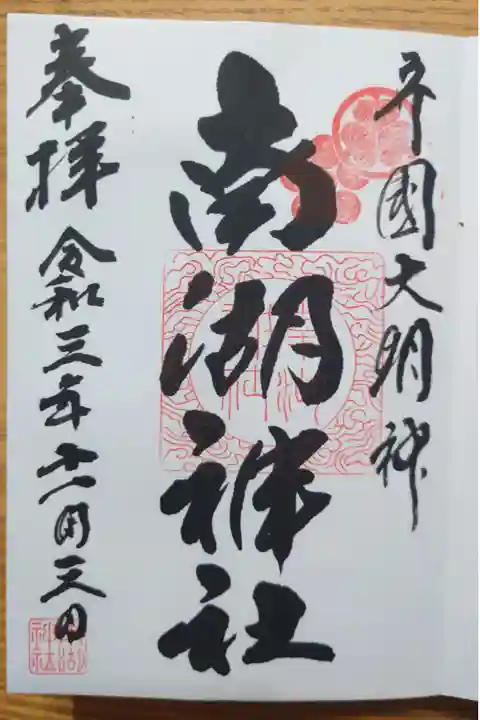 守國大明神
南湖神社
奉拝
令和三年十一月三日
南湖神社